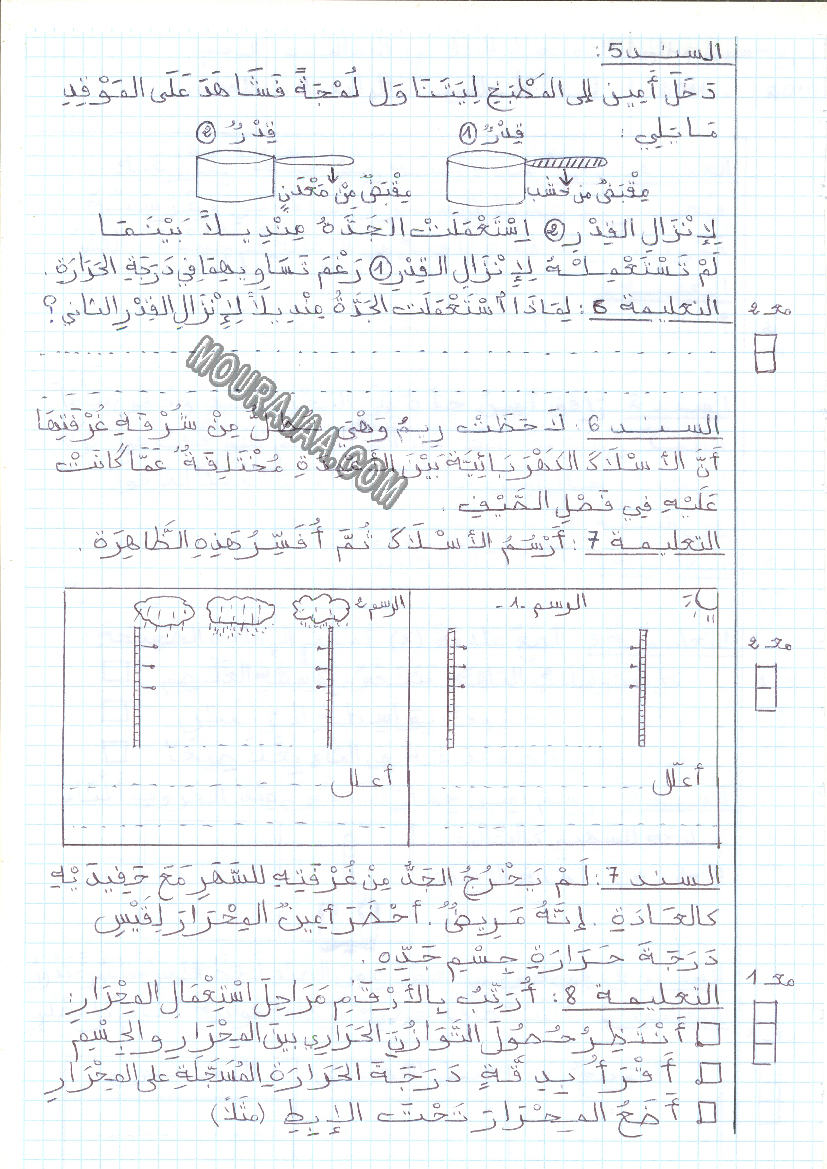 السند 5:
دَخَلَ أَمِين إلى المَطْبَخِ لِيَتَنَاوَلَ لُمْجَةً فَشَاهَدَ عَلَى المَوْقِدِ
مَا يَلِي:
قِدْرٌ ①
قِدْرٌ ②
مِقْبَضٌ مِن خَشَب
مِقْبَضٌ مِنْ مَعْدَنٍ
لِإِنْزَالِ القِدْرِ ② اِسْتَعْمَلَتْ الجَدَّةُ مِنْدِيلاً بَيْنَمَا
لَمْ تَسْتَعْمِلْهُ لِإِنْزَالِ القِدْرِ ① رَغْمَ تَسَاوِيهِمَا فِي دَرَجَةِ الحَرَارَةِ.
التعليمة 6: لِمَاذَا اُسْتَعْمَلَت الجَدَّةُ مِنْدِيلاً لِإِنْزَالِ القِدْرِ الثاني؟
مع 2
السند 6: لاَحَظَتْ رِيمُ وَهْيَ مِنْ شُرْفَةِ غُرْفَتِهَا
أَنَّ الأَسْلاَكَ الكَهْرَبَائِيَّةَ بَيْنَ الأَعْمِدَةِ مُخْتَلِفَةٌ عَمَّا كَانَتْ
عَلَيْهِ فِي فَصْلِ الصَّيْفِ.
التعليمة 7: أَرْسُمُ الأَسْلاَكَ ثُمَّ أُفَسِّرُ هَذِهِ الظَّاهِرَةَ.
الرسم -1-
الرسم 2
مع 2
أعلّل
أعلل
السند 7: لَمْ يَخْرُجُ الجَدُّ مِنْ غُرْفَتِهِ للسَّهَرِ مَعَ حَفِيدَيْهِ
كالعَادَةِ. إنَّهُ مَرِيضٌ. أَحْضَرَ أمِينٌ المِحْرَارَ لِقَيْسِ
دَرَجَةَ حَرَارَةِ جِسْمِ جَدِّهِ.
مع 1
التعليمة 8: أُرَتِّبُ بِالأَرْقَامِ مَرَاحِلَ اسْتِعْمَالِ المِحْرَارِ:
أَنْتَظِرُ حُصُولَ التَّوَازُنِ الحَرَارِي بينَ المِحْرَارِ والجِسْمِ
أَقْرَأُ بِدِقَّةٍ دَرَجَةَ الحَرَارَةِ المُسَجَّلَةِ على المِحْرَارِ
أَضَعُ المِحْرَارَ تَحْتَ الإِبِطِ (مَثَلاً)
MOURAJAA.COM